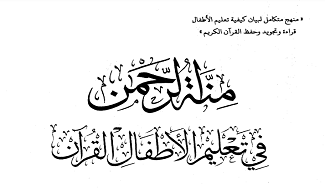 « منهج متكامل لبيان كيفية تعليم الأطفال
قراءة وتجويد وحفظ القرآن الكريم »
منة الرحمن
في تعليم الأطفال القرآن